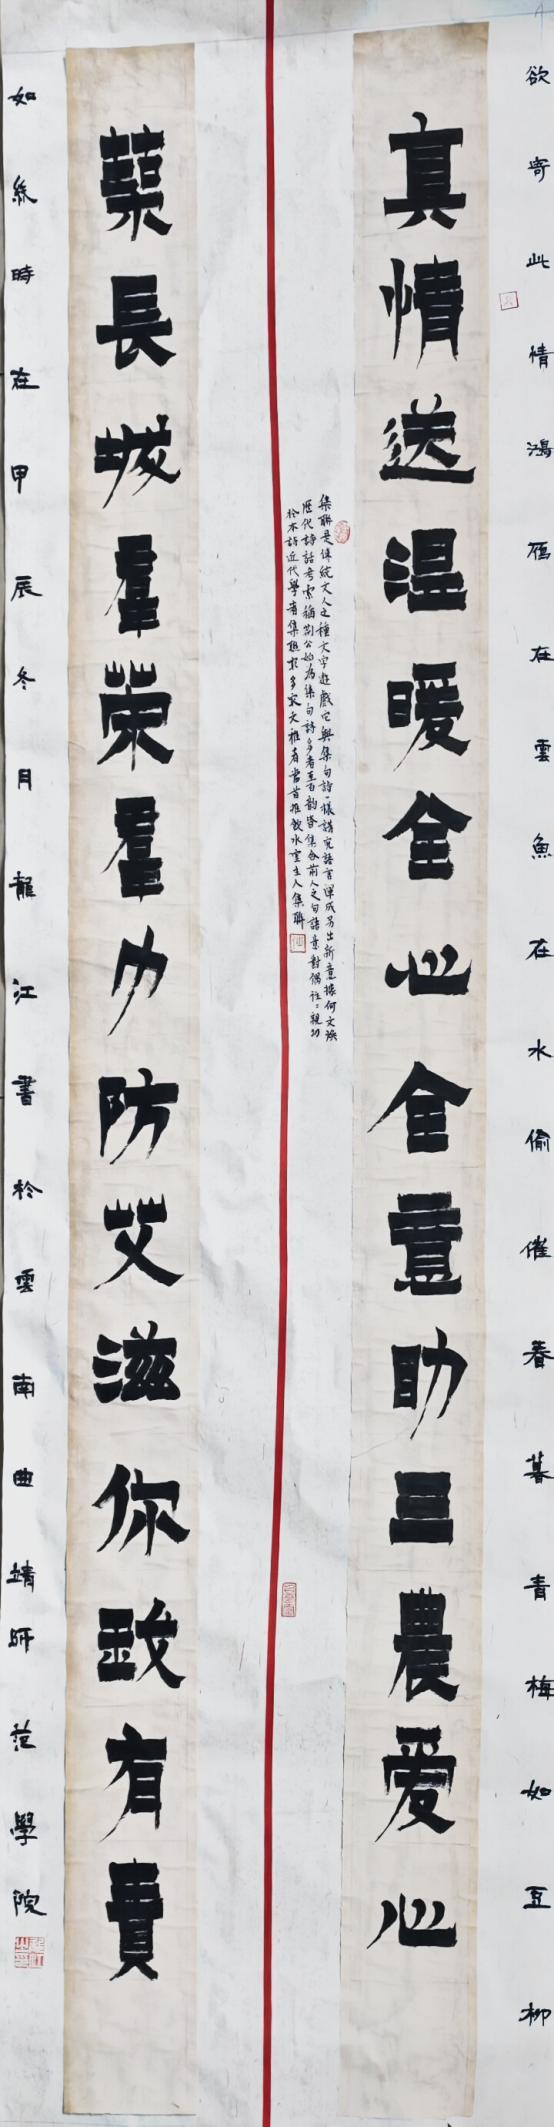 欲寄此情鴻雁在雲魚在水偷催春暮青梅如豆柳
真情送温暖全心全意助三農爱心
集聯是傳統文人之種文字遊戲它與集句詩一樣講究語言渾成另出新意據何文煥
歷代詩話考索稱荆公始為集句詩多者至百韵皆集合前人之句語意對偶往二親切
於本詩近代學者集聯於多家文雅者當首推飲水室主人集聯
築長城羣策羣力防艾滋你我有責
如絲時在甲辰冬月龍江書於雲南曲靖師范學院